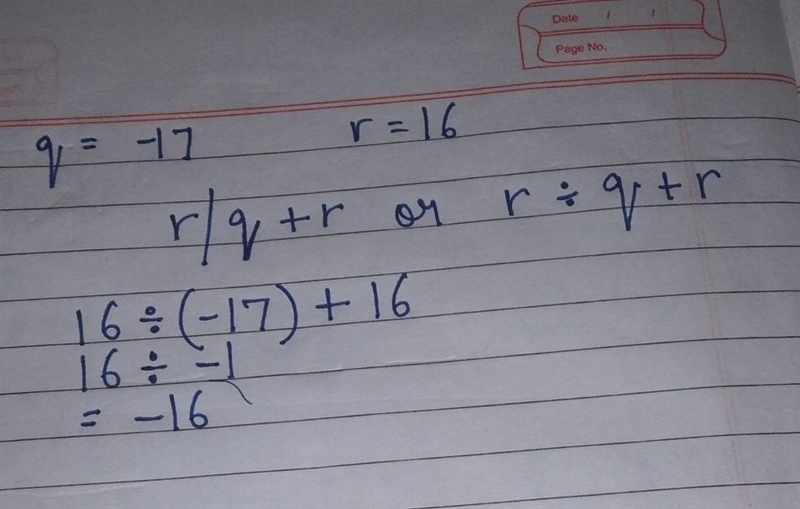 Date / /
Page No.
q = -17 r = 16
r/q + r or r ÷ q + r
16 ÷ (-17) + 16
16 ÷ -1
= -16